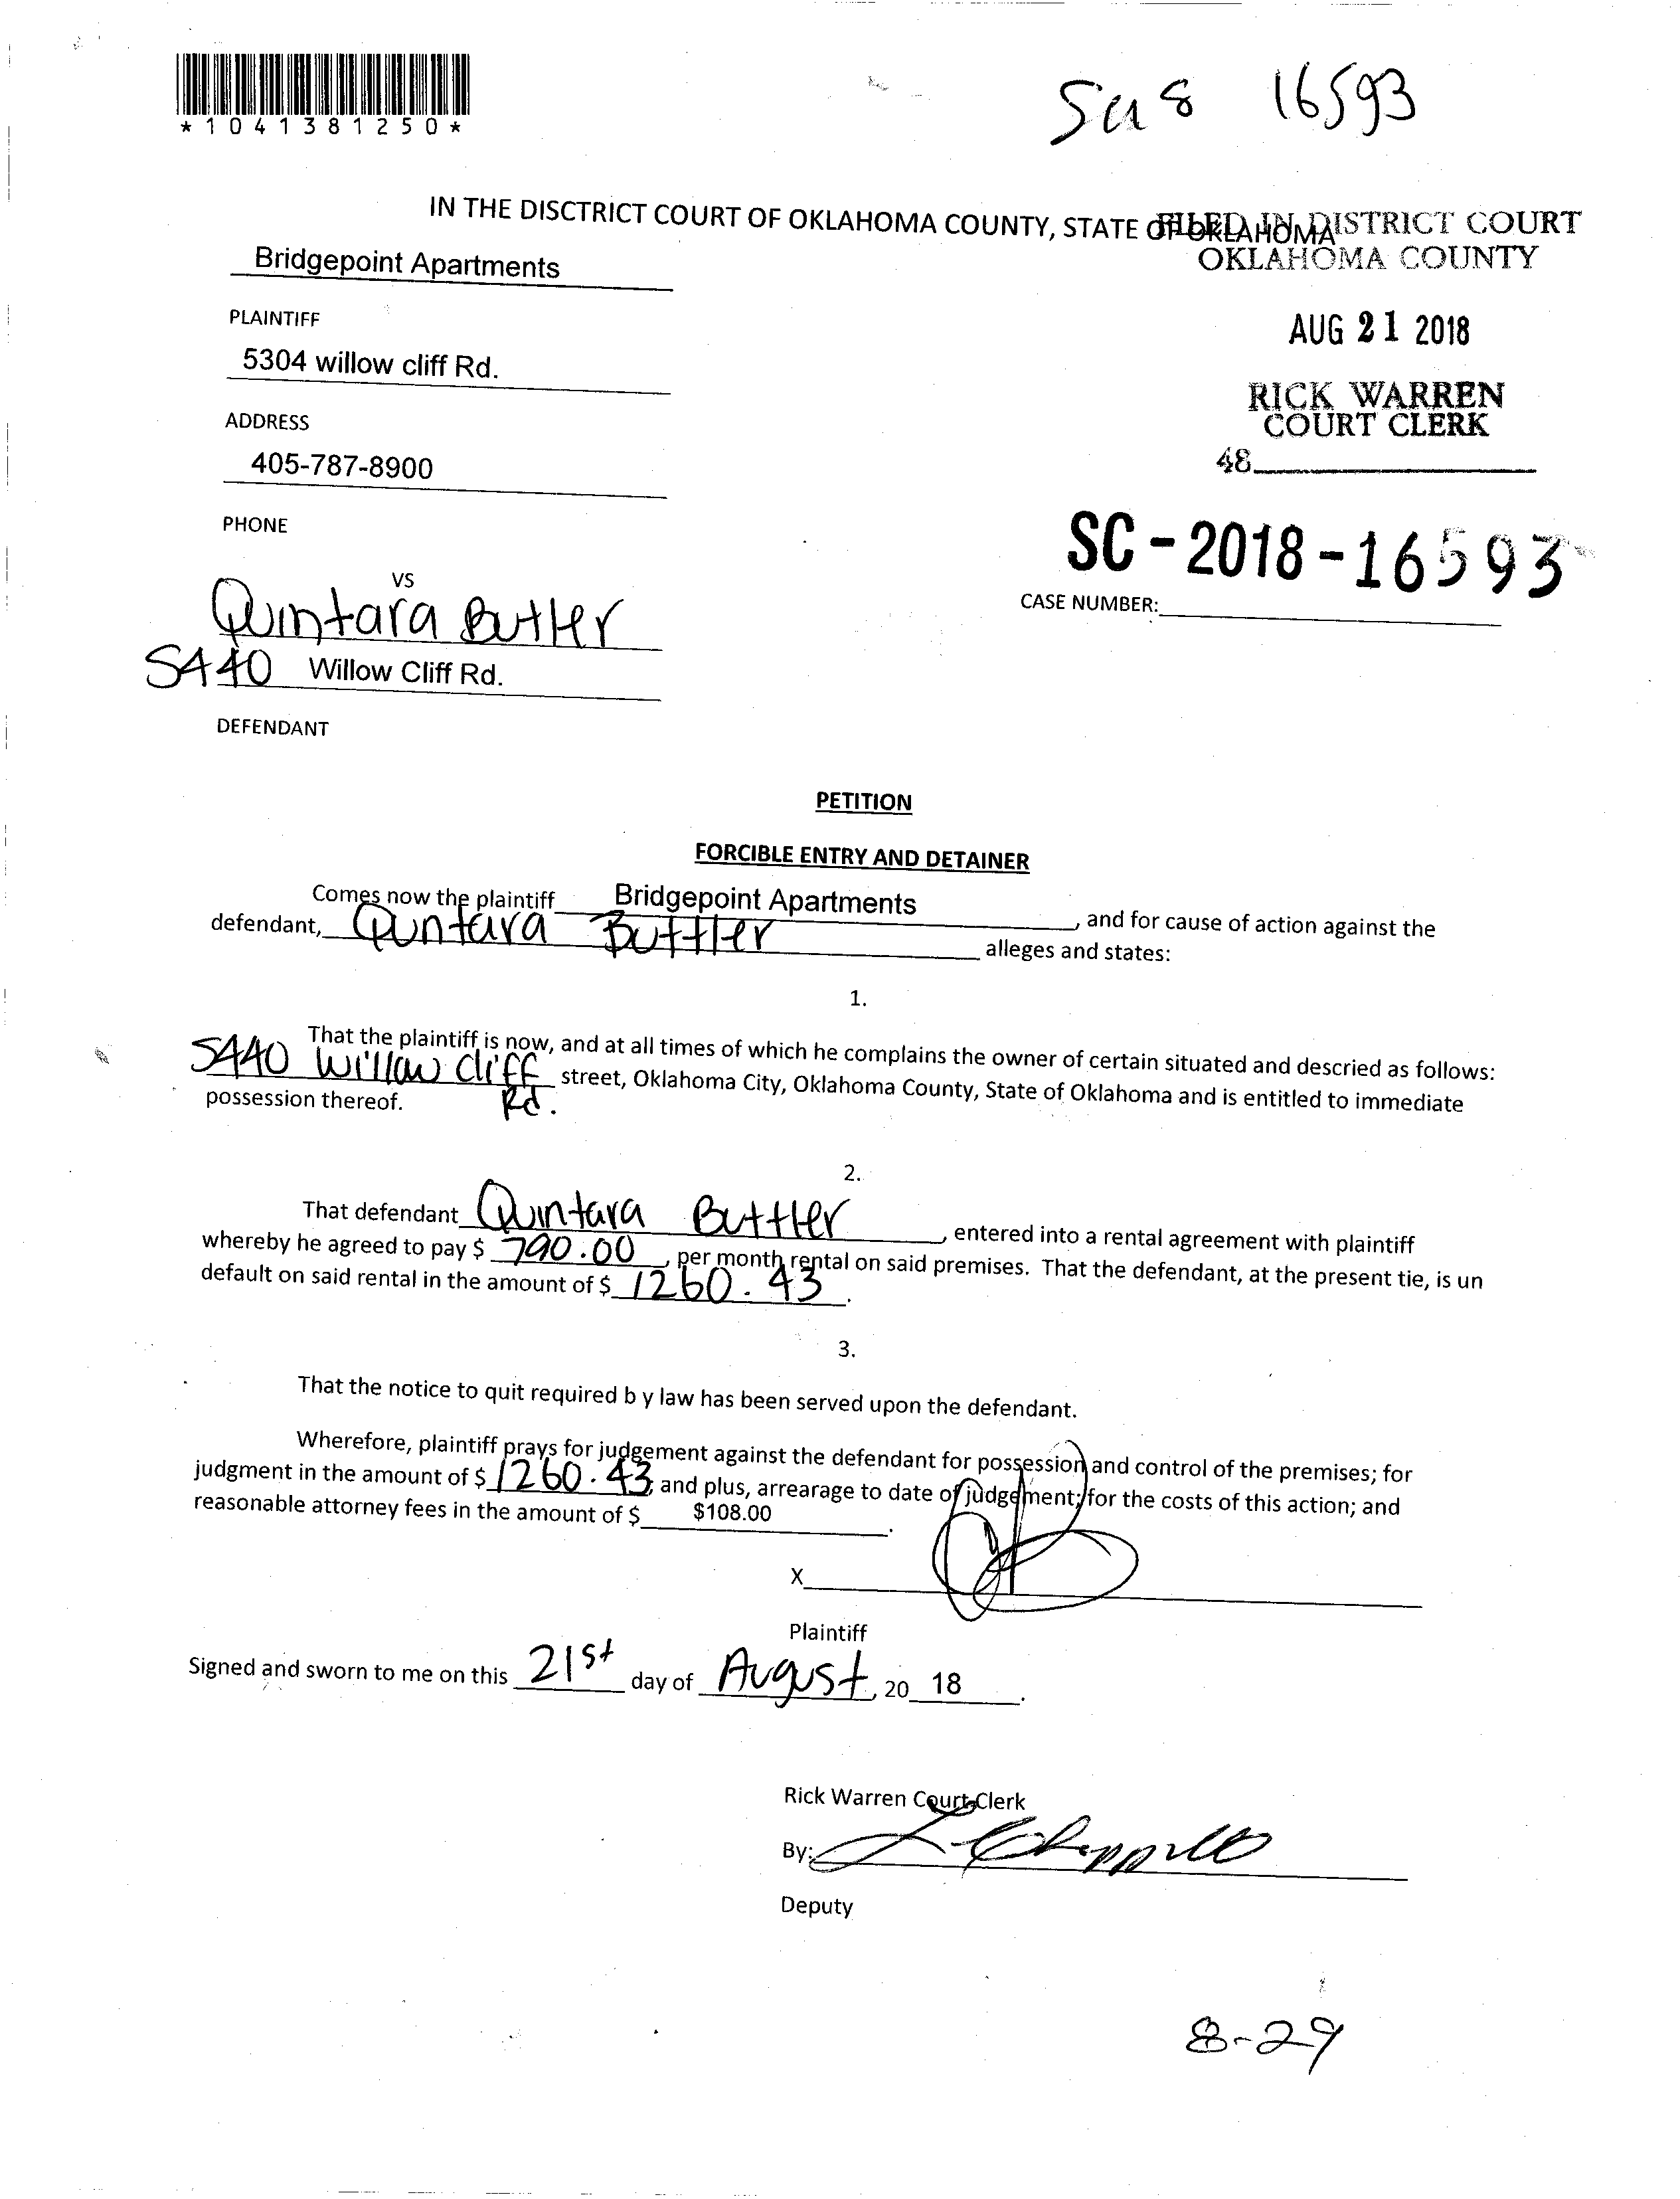 *1041381250*
16593
IN THE DISCTRICT COURT OF OKLAHOMA COUNTY, STATE OF OKLAHOMA
FILED IN DISTRICT COURT
OKLAHOMA COUNTY
Bridgepoint Apartments
PLAINTIFF
AUG 21 2018
5304 willow cliff Rd.
RICK WARREN
COURT CLERK
ADDRESS
405-787-8900
48
PHONE
SC-2018-16593
VS
CASE NUMBER:
Quintara Butler
5440 Willow Cliff Rd.
DEFENDANT
PETITION
FORCIBLE ENTRY AND DETAINER
Comes now the plaintiff Bridgepoint Apartments, and for cause of action against the
defendant, Quntara Buttler alleges and states:
1.
That the plaintiff is now, and at all times of which he complains the owner of certain situated and descried as follows:
5440 Willow Cliff Rd. street, Oklahoma City, Oklahoma County, State of Oklahoma and is entitled to immediate
possession thereof.
2.
That defendant Quintara Buttler, entered into a rental agreement with plaintiff
whereby he agreed to pay $ 790.00, per month rental on said premises. That the defendant, at the present tie, is un
default on said rental in the amount of $ 1260.43.
3.
That the notice to quit required b y law has been served upon the defendant.
Wherefore, plaintiff prays for judgement against the defendant for possession and control of the premises; for
judgment in the amount of $ 1260.43; and plus, arrearage to date of judgement; for the costs of this action; and
reasonable attorney fees in the amount of $ $108.00.
X
Plaintiff
Signed and sworn to me on this 21st day of August, 20 18.
Rick Warren Court Clerk
By:
Deputy
8-29